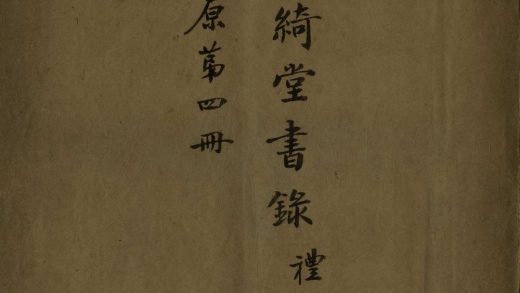 綺堂書錄 禮
原第四冊